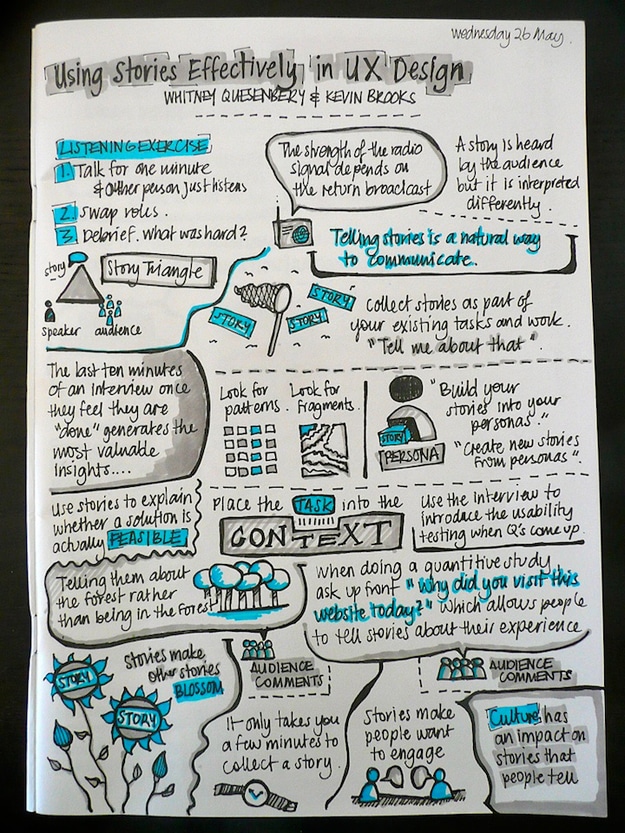 Wednesday 26 May.
Using Stories Effectively in UX Design
WHITNEY QUESENBERY & KEVIN BROOKS
LISTENING EXERCISE
1. Talk for one minute
& other person just listens
2. Swap roles.
3. Debrief. What was hard?
The strength of the radio
signal depends on
the return broadcast
A story is heard
by the audience
but it is interpreted
differently.
Telling stories is a natural way
to communicate.
story
Story Triangle
speaker audience
STORY
STORY
STORY
Collect stories as part of
your existing tasks and work.
"Tell me about that".
The last ten minutes
of an interview once
they feel they are
"done" generates the
most valuable
insights....
Look for
patterns.
Look for
fragments.
STORY
PERSONA
"Build your
stories into your
personas."
"Create new stories
from personas".
Use stories to explain
whether a solution is
actually FEASIBLE
Place the TASK into the
CONTEXT
Use the interview to
introduce the usability
testing when Q's come up
Telling them about
the forest rather
than being in the forest
When doing a quantitive study
ask up front "Why did you visit this
website today?" Which allows people
to tell stories about their experience
AUDIENCE
COMMENTS
AUDIENCE
COMMENTS
STORY
STORY
Stories make
other stories
BLOSSOM
It only takes you
a few minutes to
collect a story.
Stories make
people want
to engage
Culture has
an impact on
stories that
people tell